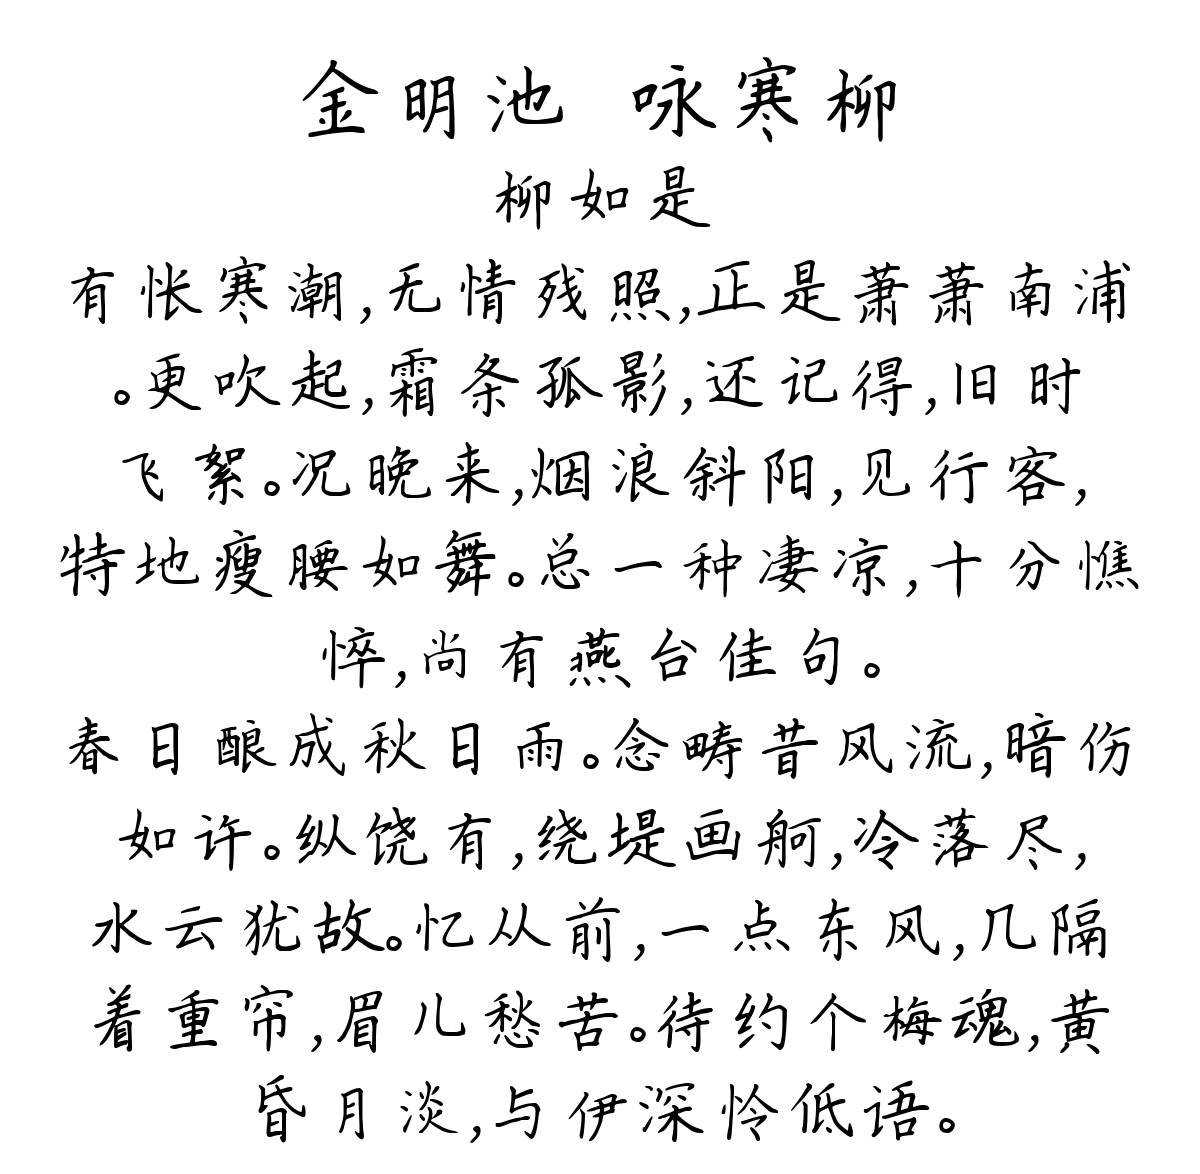 金明池 咏寒柳
柳如是
有怅寒潮,无情残照,正是萧萧南浦
。更吹起,霜条孤影,还记得,旧时
飞絮。况晚来,烟浪斜阳,见行客,
特地瘦腰如舞。总一种凄凉,十分憔
悴,尚有燕台佳句。
春日酿成秋日雨。念畴昔风流,暗伤
如许。纵饶有,绕堤画舸,冷落尽,
水云犹故。忆从前,一点东风,几隔
着重帘,眉儿愁苦。待约个梅魂,黄
昏月淡,与伊深怜低语。